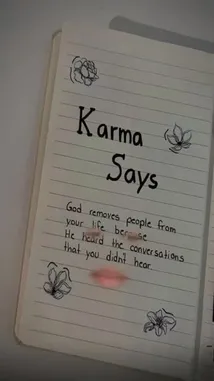 Karma
Says
God removes people from
your life because
He heard the conversations
that you didn't hear.